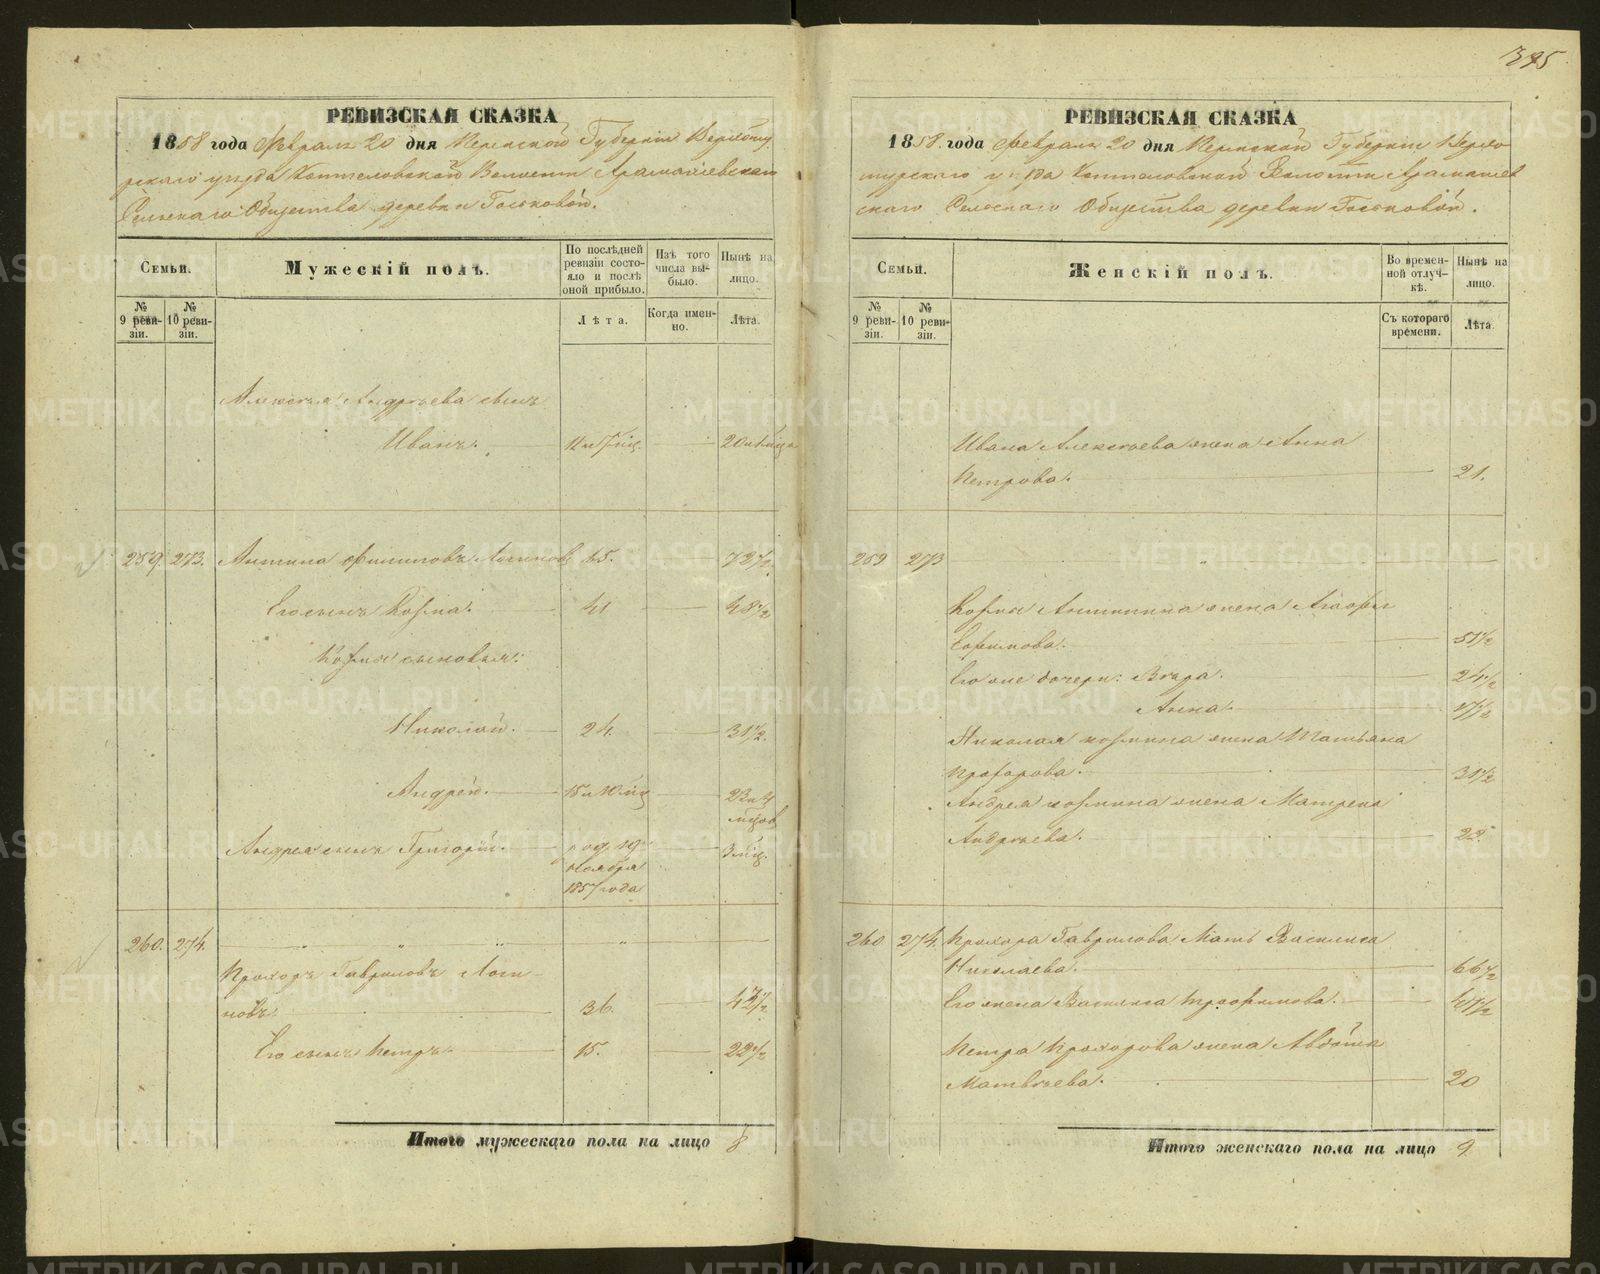 395
РЕВИЗСКАЯ СКАЗКА
1858 года Февраля 20 дня Пермской Губерніи Верхоту
рскаго уѣзда Коптеловской Волости Арамашевскаго
Сельскаго Общества деревни Госьковой.
Семьи.
Мужескій полъ.
По послѣдней ревизіи состояло и послѣ оной прибыло.
Изъ того числа выбыло.
Нынѣ на лицо.
№ 9 ревизіи.
№ 10 ревизіи.
Лѣта.
Когда именно.
Лѣта.
Алексея Андреева сынъ
Иванъ. 20
259. 273. Антипа Филиповъ Логиновъ 65. 72½
Его сынъ Козма. 41 48½
Козмы сыновья:
Николай. 24. 31½.
Андрей. 15 и 10 мѣц 23 и 4
мѣсяц
Андрея сынъ Григорій. род. 19 3 мѣц.
Ноября
1857 года
260. 274. " " " "
Прохоръ Гавриловъ Логи-
новъ. 36.
Его сынъ Петръ. 15. 22½
Итого мужескаго пола на лицо 8
РЕВИЗСКАЯ СКАЗКА
1858 года Февраля 20 дня Пермской Губерніи Верхо
турскаго уѣзда Коптеловской Волости Арамашев
скаго Сельскаго Общества деревни Госьковой.
Семьи.
Женскій полъ.
Во временной отлучкѣ.
Нынѣ на лицо.
№ 9 ревизіи.
№ 10 ревизіи.
Съ котораго времени.
Лѣта.
Ивана Алексеева жена Анна
Петрова. 21.
259 273 "
Козмы Антипина жена
Ефимова. 51½
Его же дочери: Вѣра. 24½
Анна. 17½
Николая Козмина жена Татьяна
Прохорова. 31½
Андрея Козмина жена Матрена
Андреева. 22
260 274. Прохора Гаврилова Мать Василиса
Николаева. 66½
Его жена Василиса Трофимова. 41½
Петра Прохорова жена Авдотья
Матвѣева. 20
Итого женскаго пола на лицо 9
METRIKI.GASO-URAL.RU